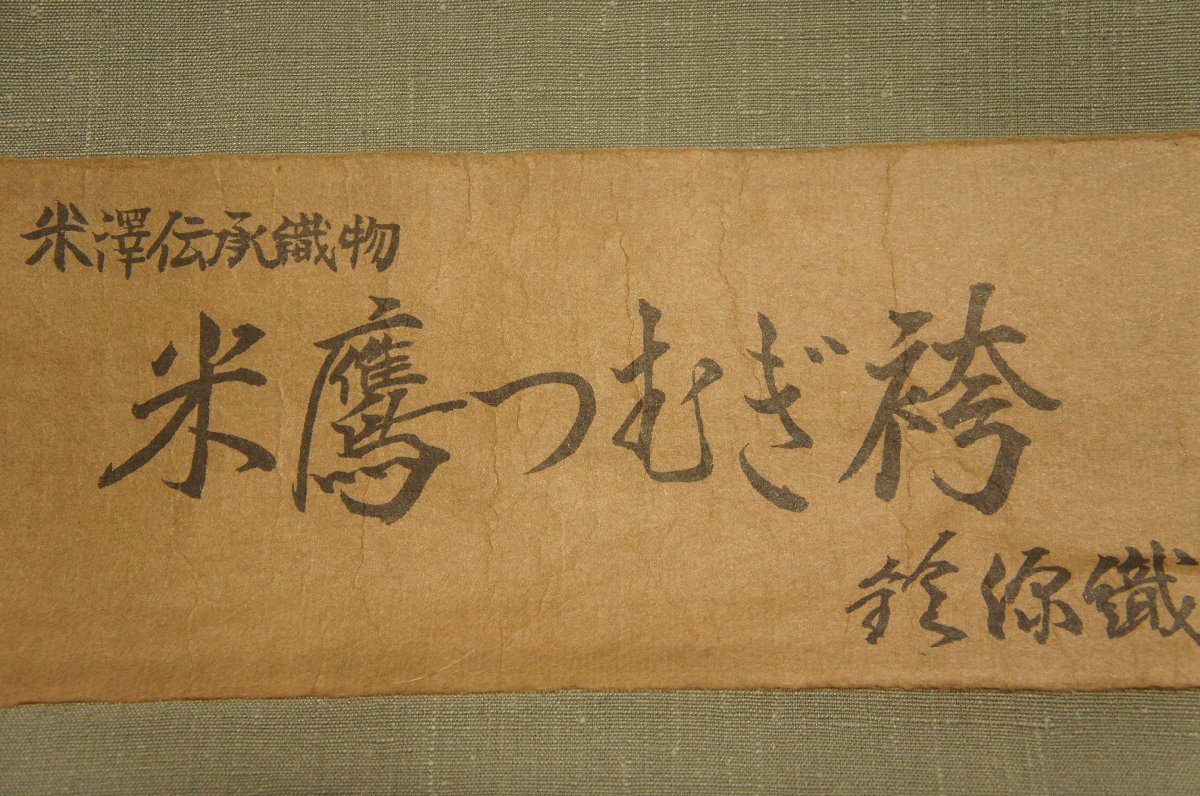 米澤伝承織物
米鷹つむぎ袴
鈴源織